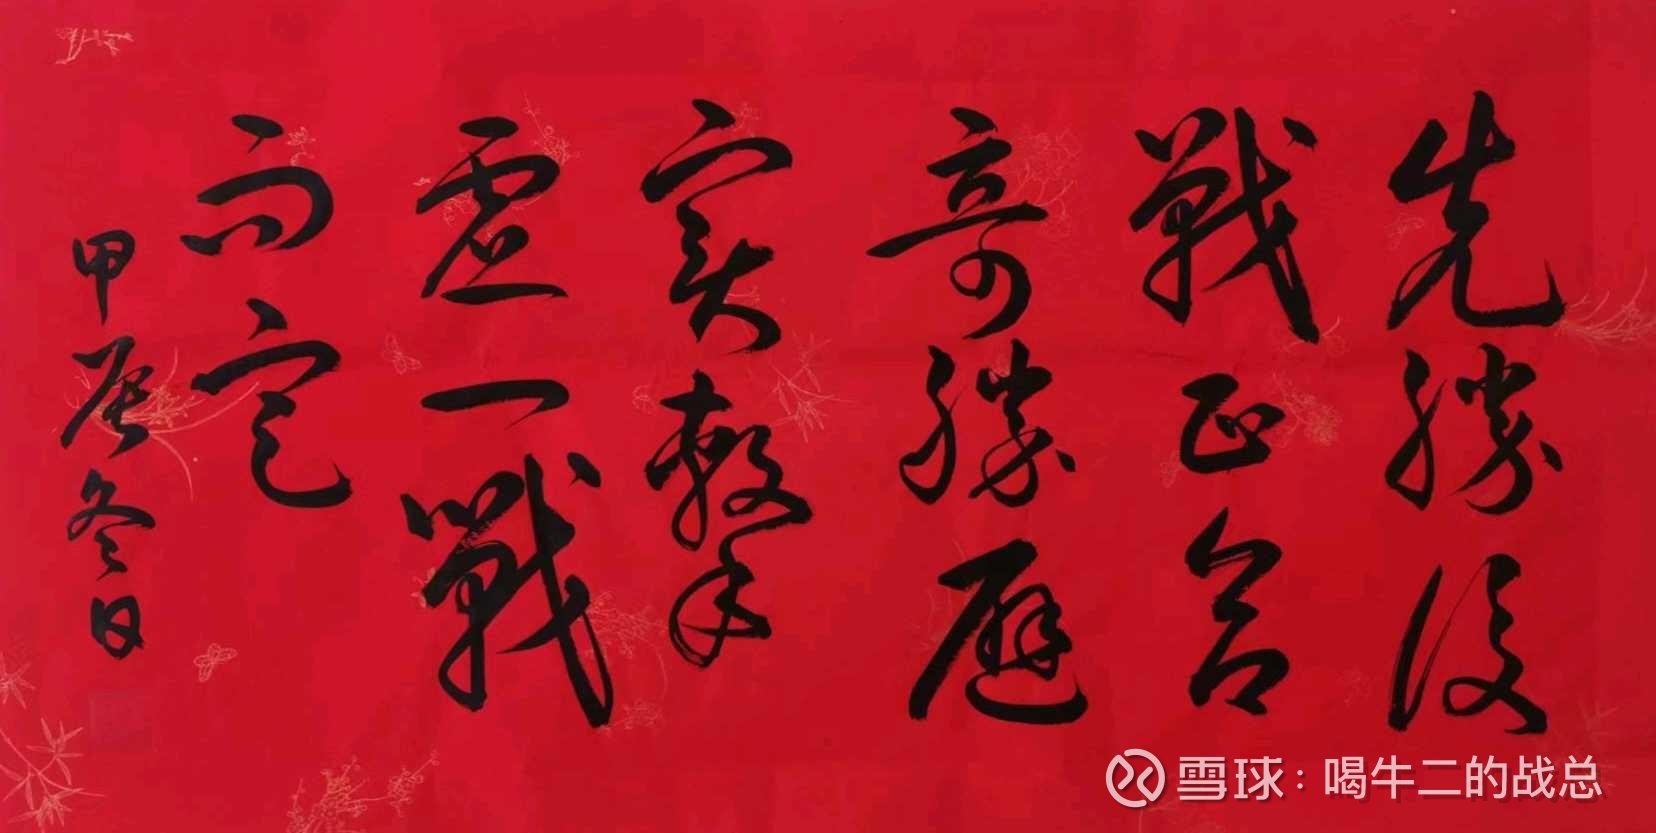 先勝後
戰正合
奇勝避
實擊
虛一戰
而定
甲辰冬日
雪球：喝牛二的战总